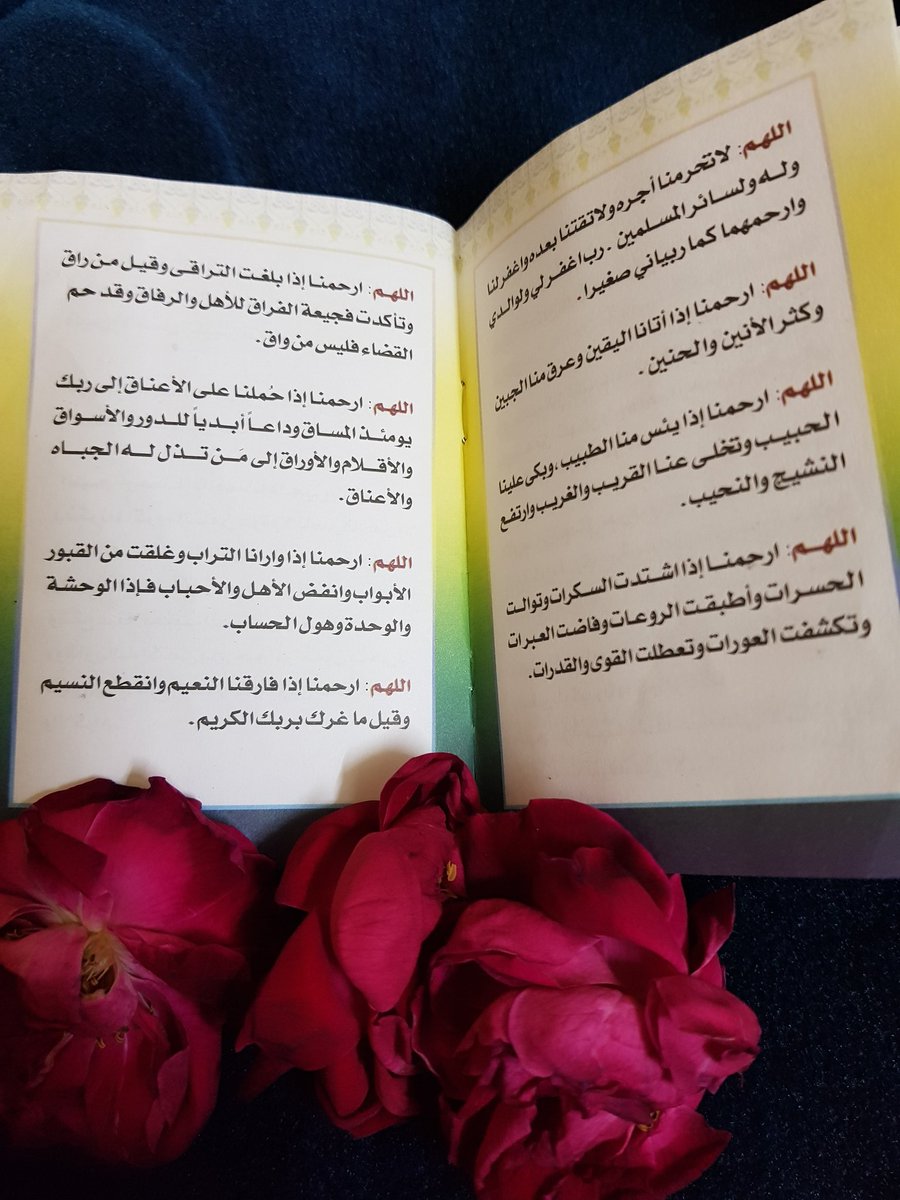 اللهم: لاتحرمنا أجره ولاتفتنا بعده واغفر لنا
وله ولسائر المسلمين - رب اغفر لي ولوالدي
وارحمهما كما ربياني صغيرا .
اللهم: ارحمنا إذا أتانا اليقين وعرق منا الجبين
وكثر الأنين والحنين .
اللهم: ارحمنا إذا يئس منا الطبيب ، وبكى علينا
الحبيب وتخلى عنا القريب والغريب وارتفع
النشيج والنحيب.
اللهم: ارحمنا إذا اشتدت السكرات وتوالت
الحسرات وأطبقت الروعات وفاضت العبرات
وتكشفت العورات وتعطلت القوى والقدرات.
اللهم: ارحمنا إذا بلغت التراقى وقيل من راق
وتأكدت فجيعة الفراق للأهل والرفاق وقد حم
القضاء فليس من واق.
اللهم: ارحمنا إذا حُملنا على الأعناق إلى ربك
يومئذ المساق وداعاً أبدياً للدور والأسواق
والأقلام والأوراق إلى مَن تذل له الجباه
والأعناق.
اللهم: ارحمنا إذا وارانا التراب وغلقت من القبور
الأبواب وانفض الأهل والأحباب فإذا الوحشة
والوحدة وهول الحساب.
اللهم: ارحمنا إذا فارقنا النعيم وانقطع النسيم
وقيل ما غرك بربك الكريم.